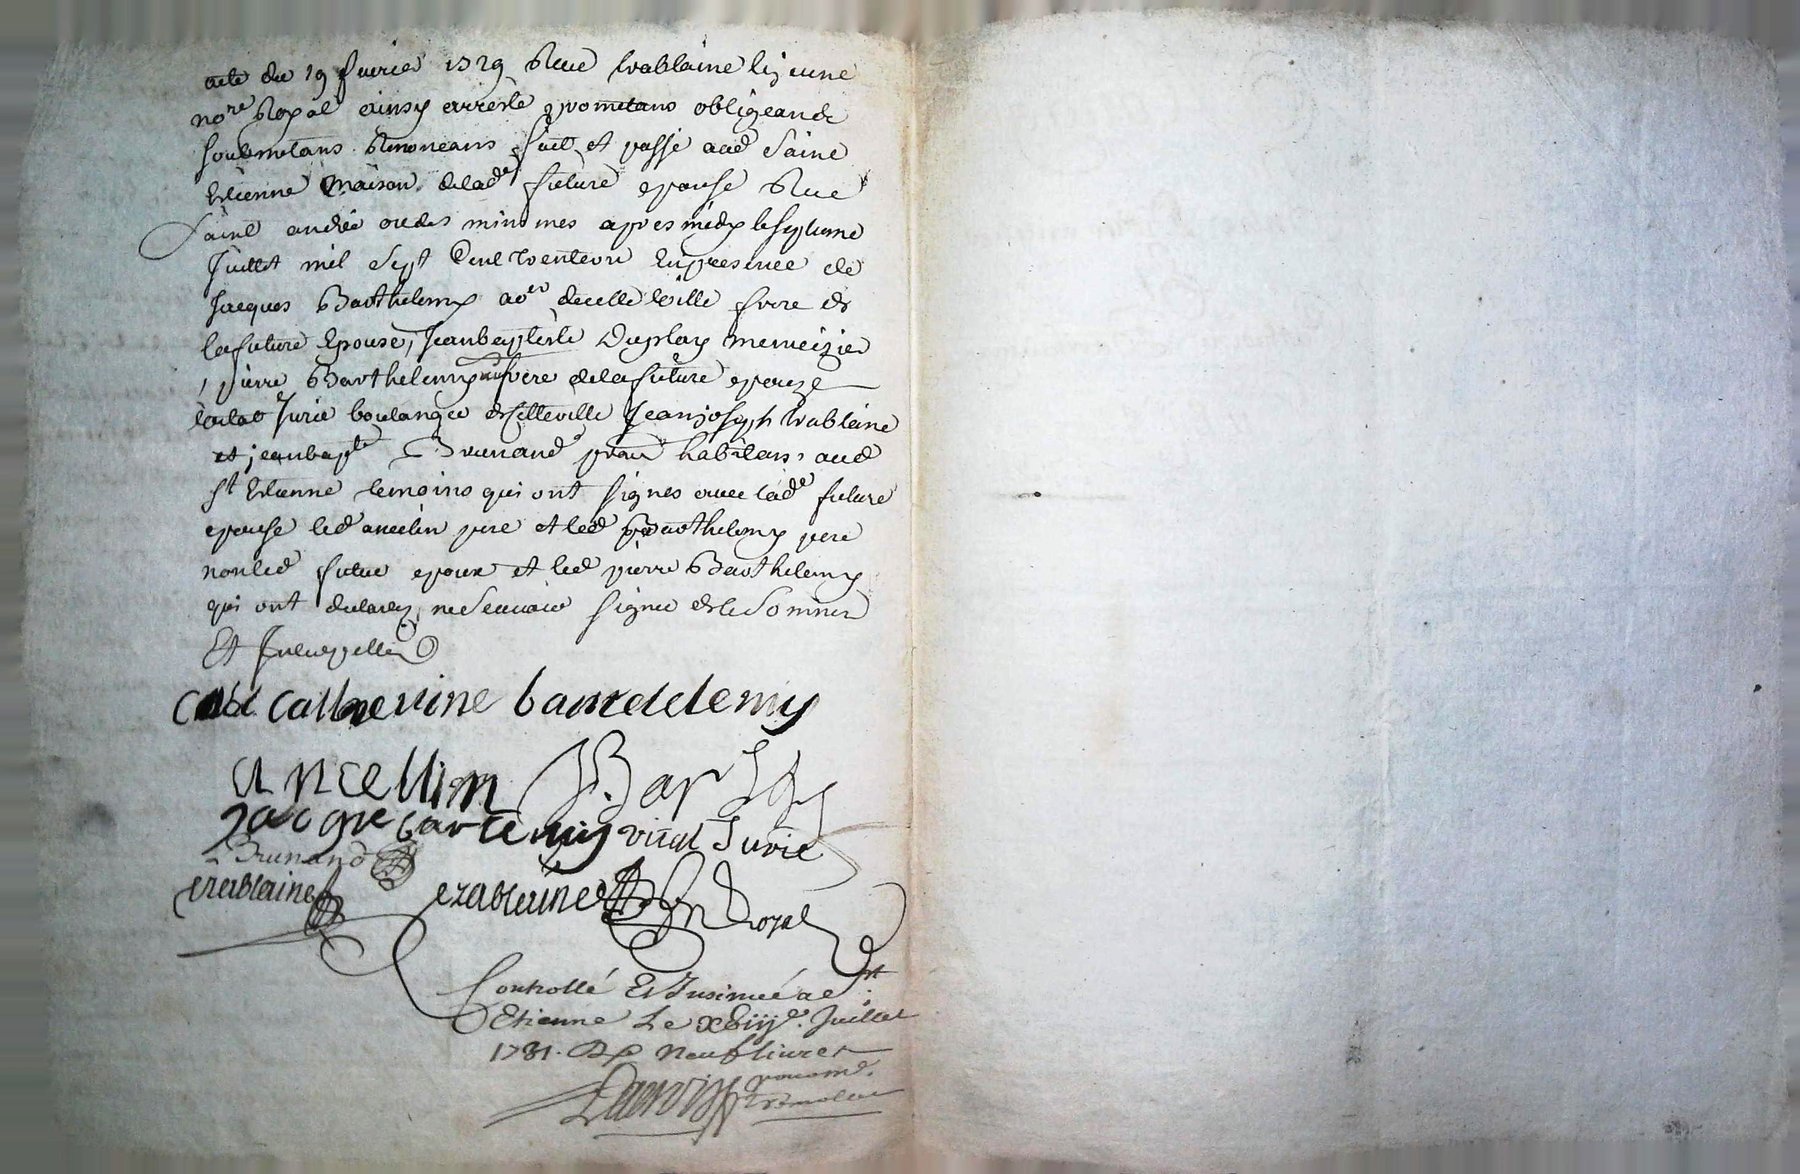 acte du 19 fevrier 1729 Reçue trablaine le jeune
no.re Royal ainsy arresté promettans obligeans
soubmetans Renonceans fait et passé aud Saint
Etienne maison de lad.e future epouse Rue
Saint andré ou des minimes apres midy le septieme
Juillet mil sept Cent trente un En presence de
Jacques Barthelemy de cette ville frere de
la future Epouse, Jean baptiste Duplay menuizier
, pierre Barthelemy frere de la future epouze
vital Jurie boulanger de cette ville Jean joseph trablaine
et jean bap.te Brunand prati habitans aud
S.t Etienne temoins qui ont signés avec lad.e future
epouse led ancelin pere et led Barthelemy pere
non led futur epoux et led pierre Barthelemy
qui ont declarez ne Scavoir signer de ce Sommez
Et Interpellez
catherine bartdelemy
ancellin J. Barthy
Jacque bartemy vital Jurie
Brunand
trablaine trablaine no Royal
Controllé Et Insinué a S.t
Etienne Le xviij.e Juillet
1731. R neuf livres